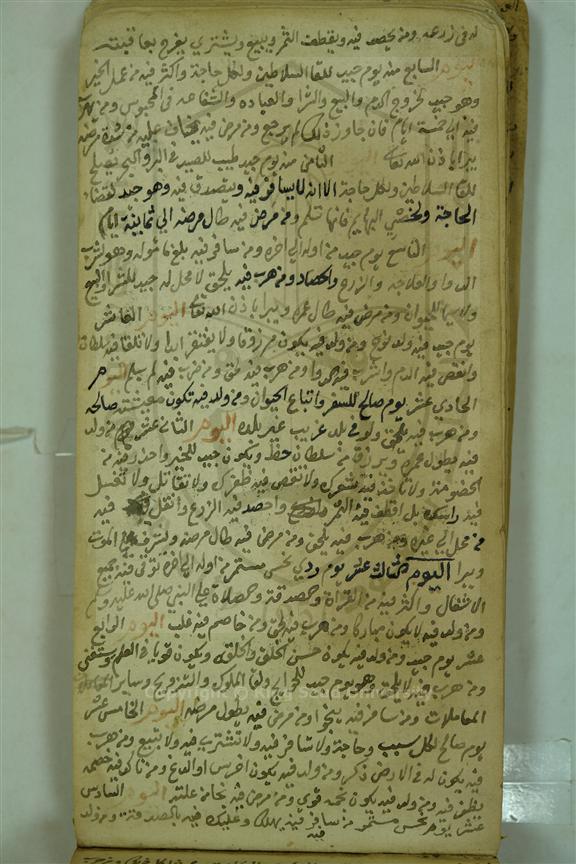 له في زرعه ومن يحصد فيه ويقطف الثمر ويبيع ويشتري يفرح بعاقبته
اليوم السابع منه يوم جيد للقا السلاطين ولكل حاجة واكثر فيه من عمل الخير
وهو جيد لخروج الدم والبيع والشرا والعباده والشفاعه في المحبوس ومن
فيه الي خمسة ايام فان جاوز ذلك لم يرجع ومن مرض فيه يخاف عليه من شدة مرضه
يبرا باذن الله تعا اليوم الثامن منه يوم جيد طيب للصيد في البر والبحر يصلح
للقا السلاطين ولكل حاجة الا انه لا يسافر فيه ويتصدق فيه وهو جيد لقضاء
الحاجة فانها تسلم ومن مرض فيه طال مرضه الي ثمانية ايام
اليوم التاسع يوم جيد من اوله الي اخره ومن سافر فيه بلغ مأموله وهو لشرب
الدوا والعلاجة والزرع والحصاد ومن هرب فيه يلحق لا محل له جيد للشرا والبيع
ولا سيما للحيوان ومن مرض فيه طال عمره ويبرا باذن الله تعا اليوم العاشر
يوم جيد فيه ولد نوح ومن ولد فيه يكون مرزوقا ولا يفتقر ابدا ولا تلقا فيه سلطان
وانقص فيه الدم واشرب فيه الدوا ومن هرب فيه لحق ومن ضرب فيه لم يسلم اليوم
الحادي عشر يوم صالح للسفر واتباع الحيوان ومن ولد فيه تكون معيشته صالحه
ومن هرب فيه يلحق ولو في بلد غريب غير بلده اليوم الثاني عشر من ولد
فيه يطول عمره ويرزق من سلطان حظ ويكون جيد للخير واحذر فيه من
الخضومه ولا تاخذ فيه شعرك ولا تنقص فيه ظفرك ولا تقاتل ولا تغسل
فيه راسك بل اقطف فيه الثمر واحصد فيه الزرع وانقل فيه
من محل الي غيره ومن هرب فيه يلحق ومن مرض فيه طال مرضه ويشرف علي الموت
ويبرا اليوم الثالث عشر يوم ردي نحس مستمر من اوله الي اخره توقي فيه جميع
الاشغال واكثر فيه من القراة والصدقة والصلاة علي النبي صلي الله عليه وسلم
ومن ولد فيه لا يكون مباركا ومن هرب فيه لحق ومن خاصم فيه غلب اليوم الرابع
عشر يوم جيد ومن ولد فيه يكون حسن الخلق والخلق ويكون قويا في العلم
ومن هرب فيه لا يلحق وهو يوم جيد للحوايج ولقا الملوك والتزويج وساير
المعاملات ومن سافر فيه ينجوا ومن مرض فيه يطول مرضه اليوم الخامس عشر
يوم صالح لكل سبب وحاجة ولا تسافر فيه ولا تشتري فيه ولا تبيع ومن هرب
فيه يكون له في الارض ذكر ومن ولد فيه يكون اخرس او الدغ ومن ناكد فيه خصمه
يظفر فيه ومن ولد فيه يكون نجمه قوي ومن مرض فيه نجا من علته اليوم السادس
عشر يوم نحس مستمر من سافر فيه يهلك وعليك فيه بالصدقة ومن ولد
فيه